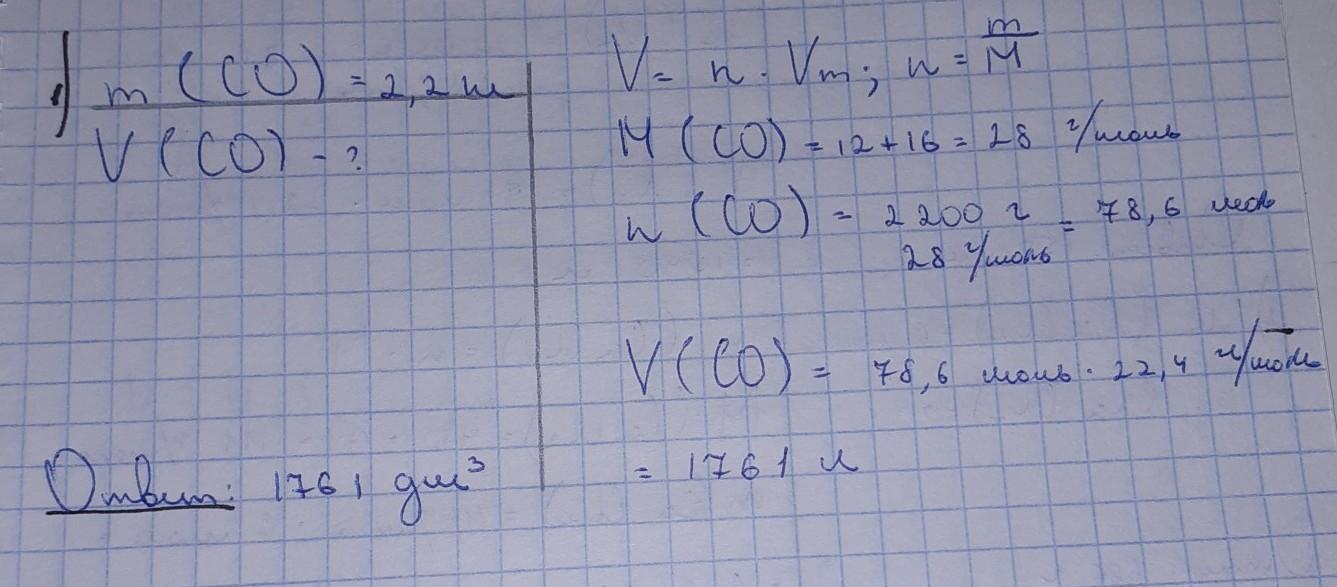 1) m (CO) = 2,2
V (CO) - ?
V = n · Vm; n = m/M
M (CO) = 12 + 16 = 28 г/моль
n (CO) = 2 200 г / 28 г/моль = 78,6 моль
V (CO) = 78,6 моль · 22,4 л/моль
= 1761 л
Ответ: 1761 дм³